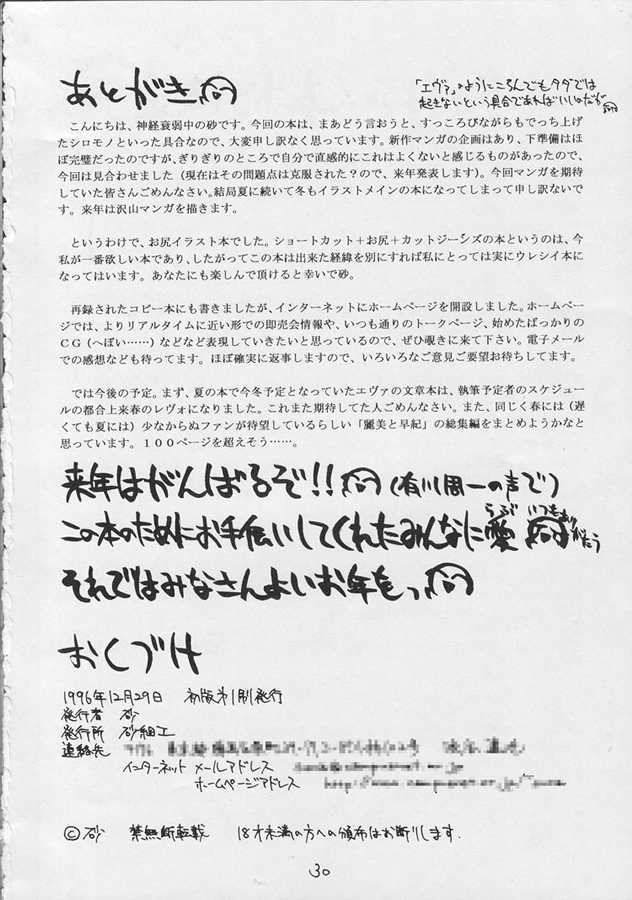 あとがき
「エヴァ」のようにころんでもタダでは
起きないという具合であればいいのだが
こんにちは、神経衰弱中の砂です。今回の本は、まあどう言おうと、すっころびながらもでっち上げ
たシロモノといった具合なので、大変申し訳なく思っています。新作マンガの企画はあり、下準備はほ
ぼ完璧だったのですが、ぎりぎりのところで自分で直感的にこれはよくないと感じるものがあったので、
今回は見合わせました（現在はその問題点は克服された？ので、来年発表します）。今回マンガを期待
していた皆さんごめんなさい。結局夏に続いて冬もイラストメインの本になってしまって申し訳ないで
す。来年は沢山マンガを描きます。
というわけで、お尻イラスト本でした。ショートカット＋お尻＋カットジーンズの本というのは、今
私が一番欲しい本であり、したがってこの本は出来た経緯を別にすれば私にとっては実にウレシイ本に
なってはいます。あなたにも楽しんで頂けると幸いで砂。
再録されたコピー本にも書きましたが、インターネットにホームページを開設しました。ホームペー
ジでは、よりリアルタイムに近い形での即売会情報や、いつも通りのトークページ、始めたばっかりの
ＣＧ（へぼい……）などなど表現していきたいと思っているので、ぜひ覗きに来て下さい。電子メール
での感想なども待ってます。ほぼ確実に返事しますので、いろいろなご意見ご要望お待ちしてます。
では今後の予定。まず、夏の本で今冬予定となっていたエヴァの文章本は、執筆予定者のスケジュー
ルの都合上来春のレヴォになりました。これまた期待してた人ごめんなさい。また、同じく春には（遅
くても夏には）少なからぬファンが待望しているらしい「麗美と早紀」の総集編をまとめようかなと
思っています。１００ページを超えそう……。
来年はがんばるぞ!!（有川周一の声で）
この本のためにお手伝いしてくれたみんなに愛
らぶ いつもありがとう
それではみなさんよいお年をっ
おくづけ
1996年12月29日 初版第1刷発行
発行者 砂
発行所 砂細工
連絡先
インターネット メールアドレス
ホームページアドレス
©砂 禁無断転載 18才未満の方への頒布はお断りします.
30